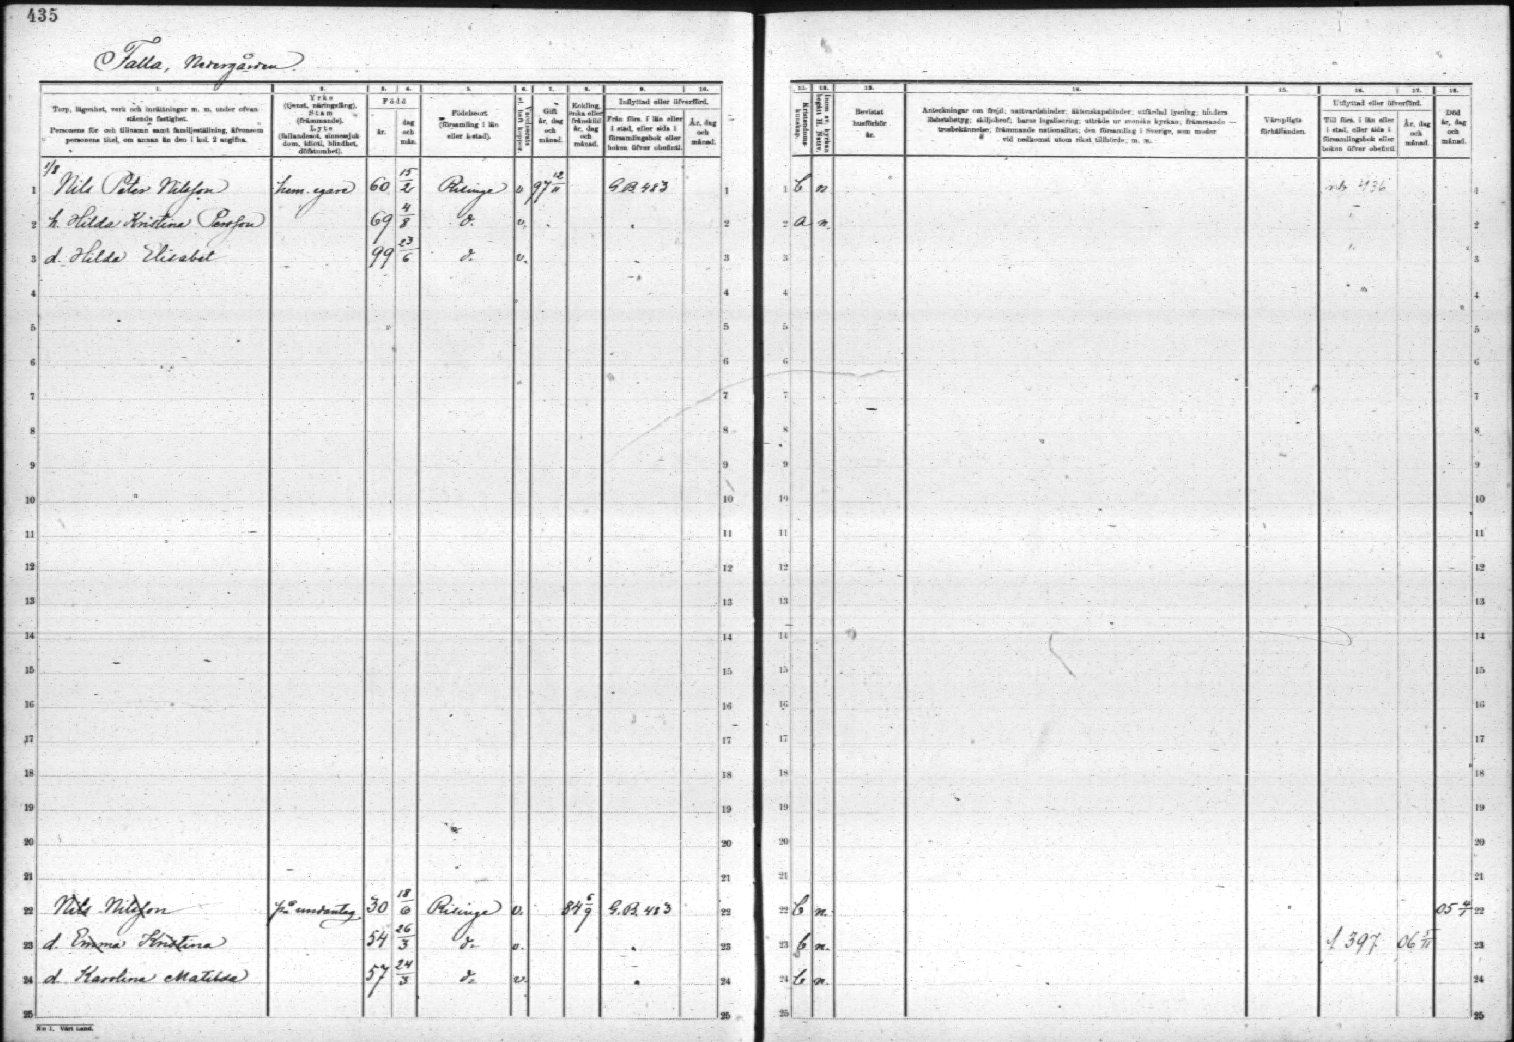 435
Falla, Nedergården.
1.
Torp, lägenhet, verk och inrättningar m. m. under ofvan
stående fastighet.
Personens för- och tillnamn samt familjeställning, äfvensom
personens titel, om annan än den i kol. 2 angifna.
2.
Yrke
(tjenst, näringsfång).
Stam
(främmande).
Lyte
(fallandesot, sinnessjuk-
dom, idioti, blindhet,
döfstumhet).
3. 4.
Född
år.
dag
och
mån.
5.
Födelseort
(församling i län
eller i stad).
6.
7.
Gift
år, dag
och
månad.
8.
Enkling,
enka eller
frånskild
år, dag
och
månad.
9. 10.
Inflyttad eller öfverförd.
Från förs. i län eller
i stad, eller sida i
församlingsbok eller
boken öfver obefintl.
År, dag
och
månad.
1/8
1 Nils Peter Nilsson hem.egare 60 15/2 Risinge v 97 12/11 G.B. 483 1
2 h. Hilda Kristina Persson 69 4/8 d:o v. 2
3 d. Hilda Elisabet 99 23/6 d:o v. 3
4 4
5 5
6 6
7 7
8 8
9 9
10 10
11 11
12 12
13 13
14 14
15 15
16 16
17 17
18 18
19 19
20 20
21 21
22 Nils Nilsson på undantag 30 18/6 Risinge v. 84 6/9 G.B. 483 22
23 d. Emma Kristina 54 26/3 d:o v. 23
24 d. Karolina Matilda 57 24/3 d:o v. 24
25 25
No 1. Vårt Land.
11.
Kristendoms-
kunskap.
12.
13.
Bevistat
husförhör.
år.
14.
Anteckningar om frejd; nattvardshinder; äktenskapshinder; utfärdad lysning; hinders-
löshetsbetyg; skiljobref; barns legalisering; utträde ur svenska kyrkan; främmande
trosbekännelse; främmande nationalitet; den församling i Sverige, som moder
vid nedkomst utom rikst tillhörde; m. m.
15.
Värnpligts
förhållanden.
16. 17.
Utflyttad eller öfverförd.
Till förs. i län eller
i stad, eller sida i
församlingsbok eller
boken öfver obefintl
År, dag
och
månad.
18.
Död
år, dag
och
månad.
1 b n 436 1
2 a n. 2
3 3
4 4
5 5
6 6
7 7
8 8
9 9
10 10
11 11
12 12
13 13
14 14
15 15
16 16
17 17
18 18
19 19
20 20
21 21
22 b n. 05 4/7 22
23 b n. 397 06 23
24 b n. 24
25 25